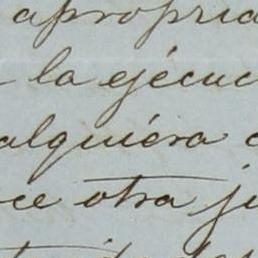 apropria
la ejécuc
alquiéra
ce otra ju